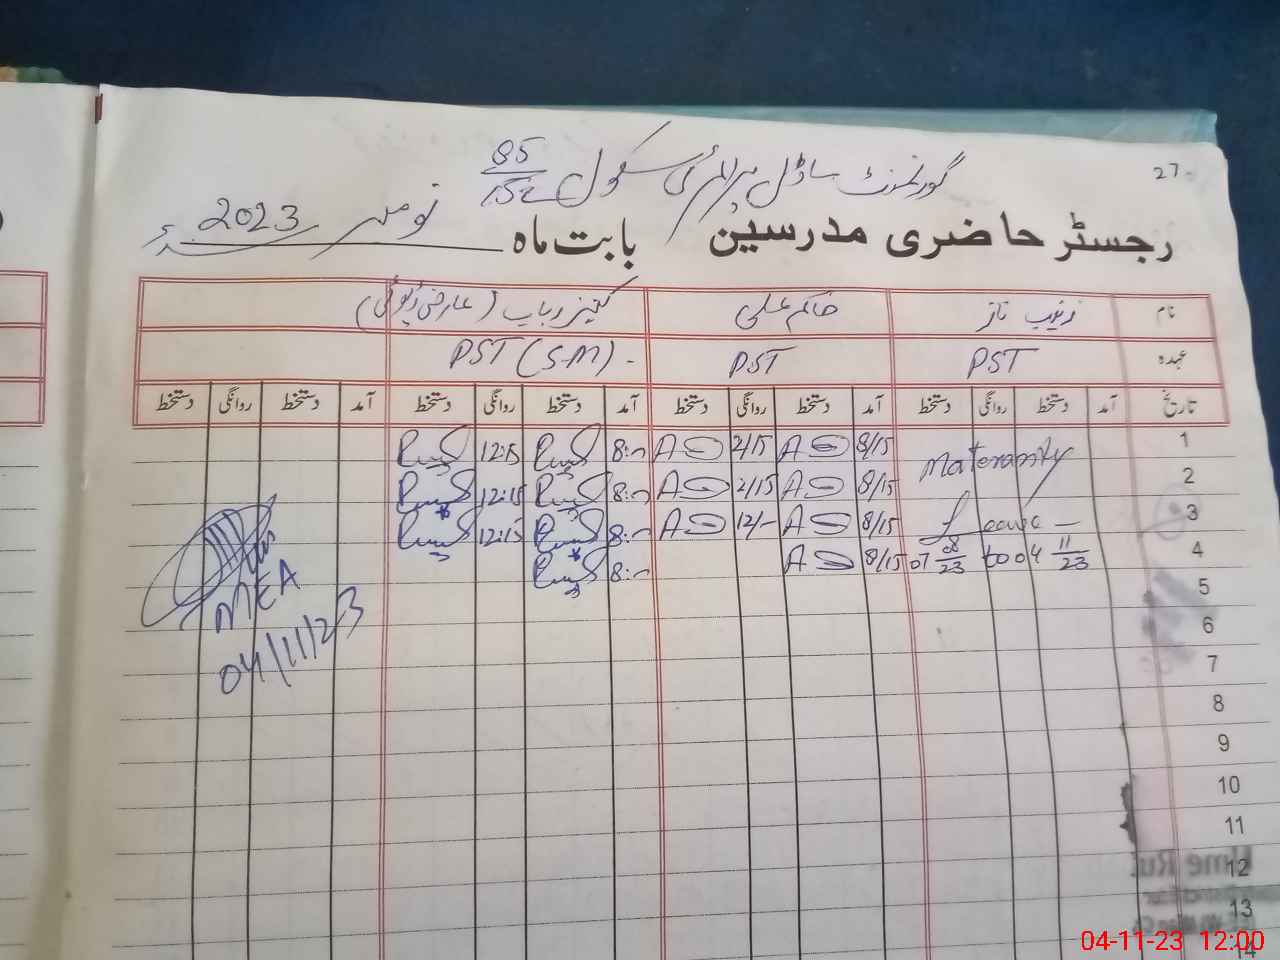 27
گورنمنٹ ماڈل پرائمری سکول 85/15L
رجسٹر حاضری مدرسین بابت ماہ نومبر 2023ء
نام زینب ناز حاکم علی کنیز رباب (عارضی ڈیوٹی)
عہدہ PST PST PST (S-M) -
تاریخ آمد دستخط روانگی دستخط آمد دستخط روانگی دستخط آمد دستخط روانگی دستخط آمد دستخط روانگی دستخط
1 Materanity 8/15 2/15 8:00 12:15
2 8/15 2/15 8:00 12:15
3 Leave — 8/15 12/- 8:00 12:15
4 07 08/23 to 04 11/23 8/15 8:00
5
6
7
8
9
10
11
12
13
14
MEA
04/11/23
04-11-23 12:00